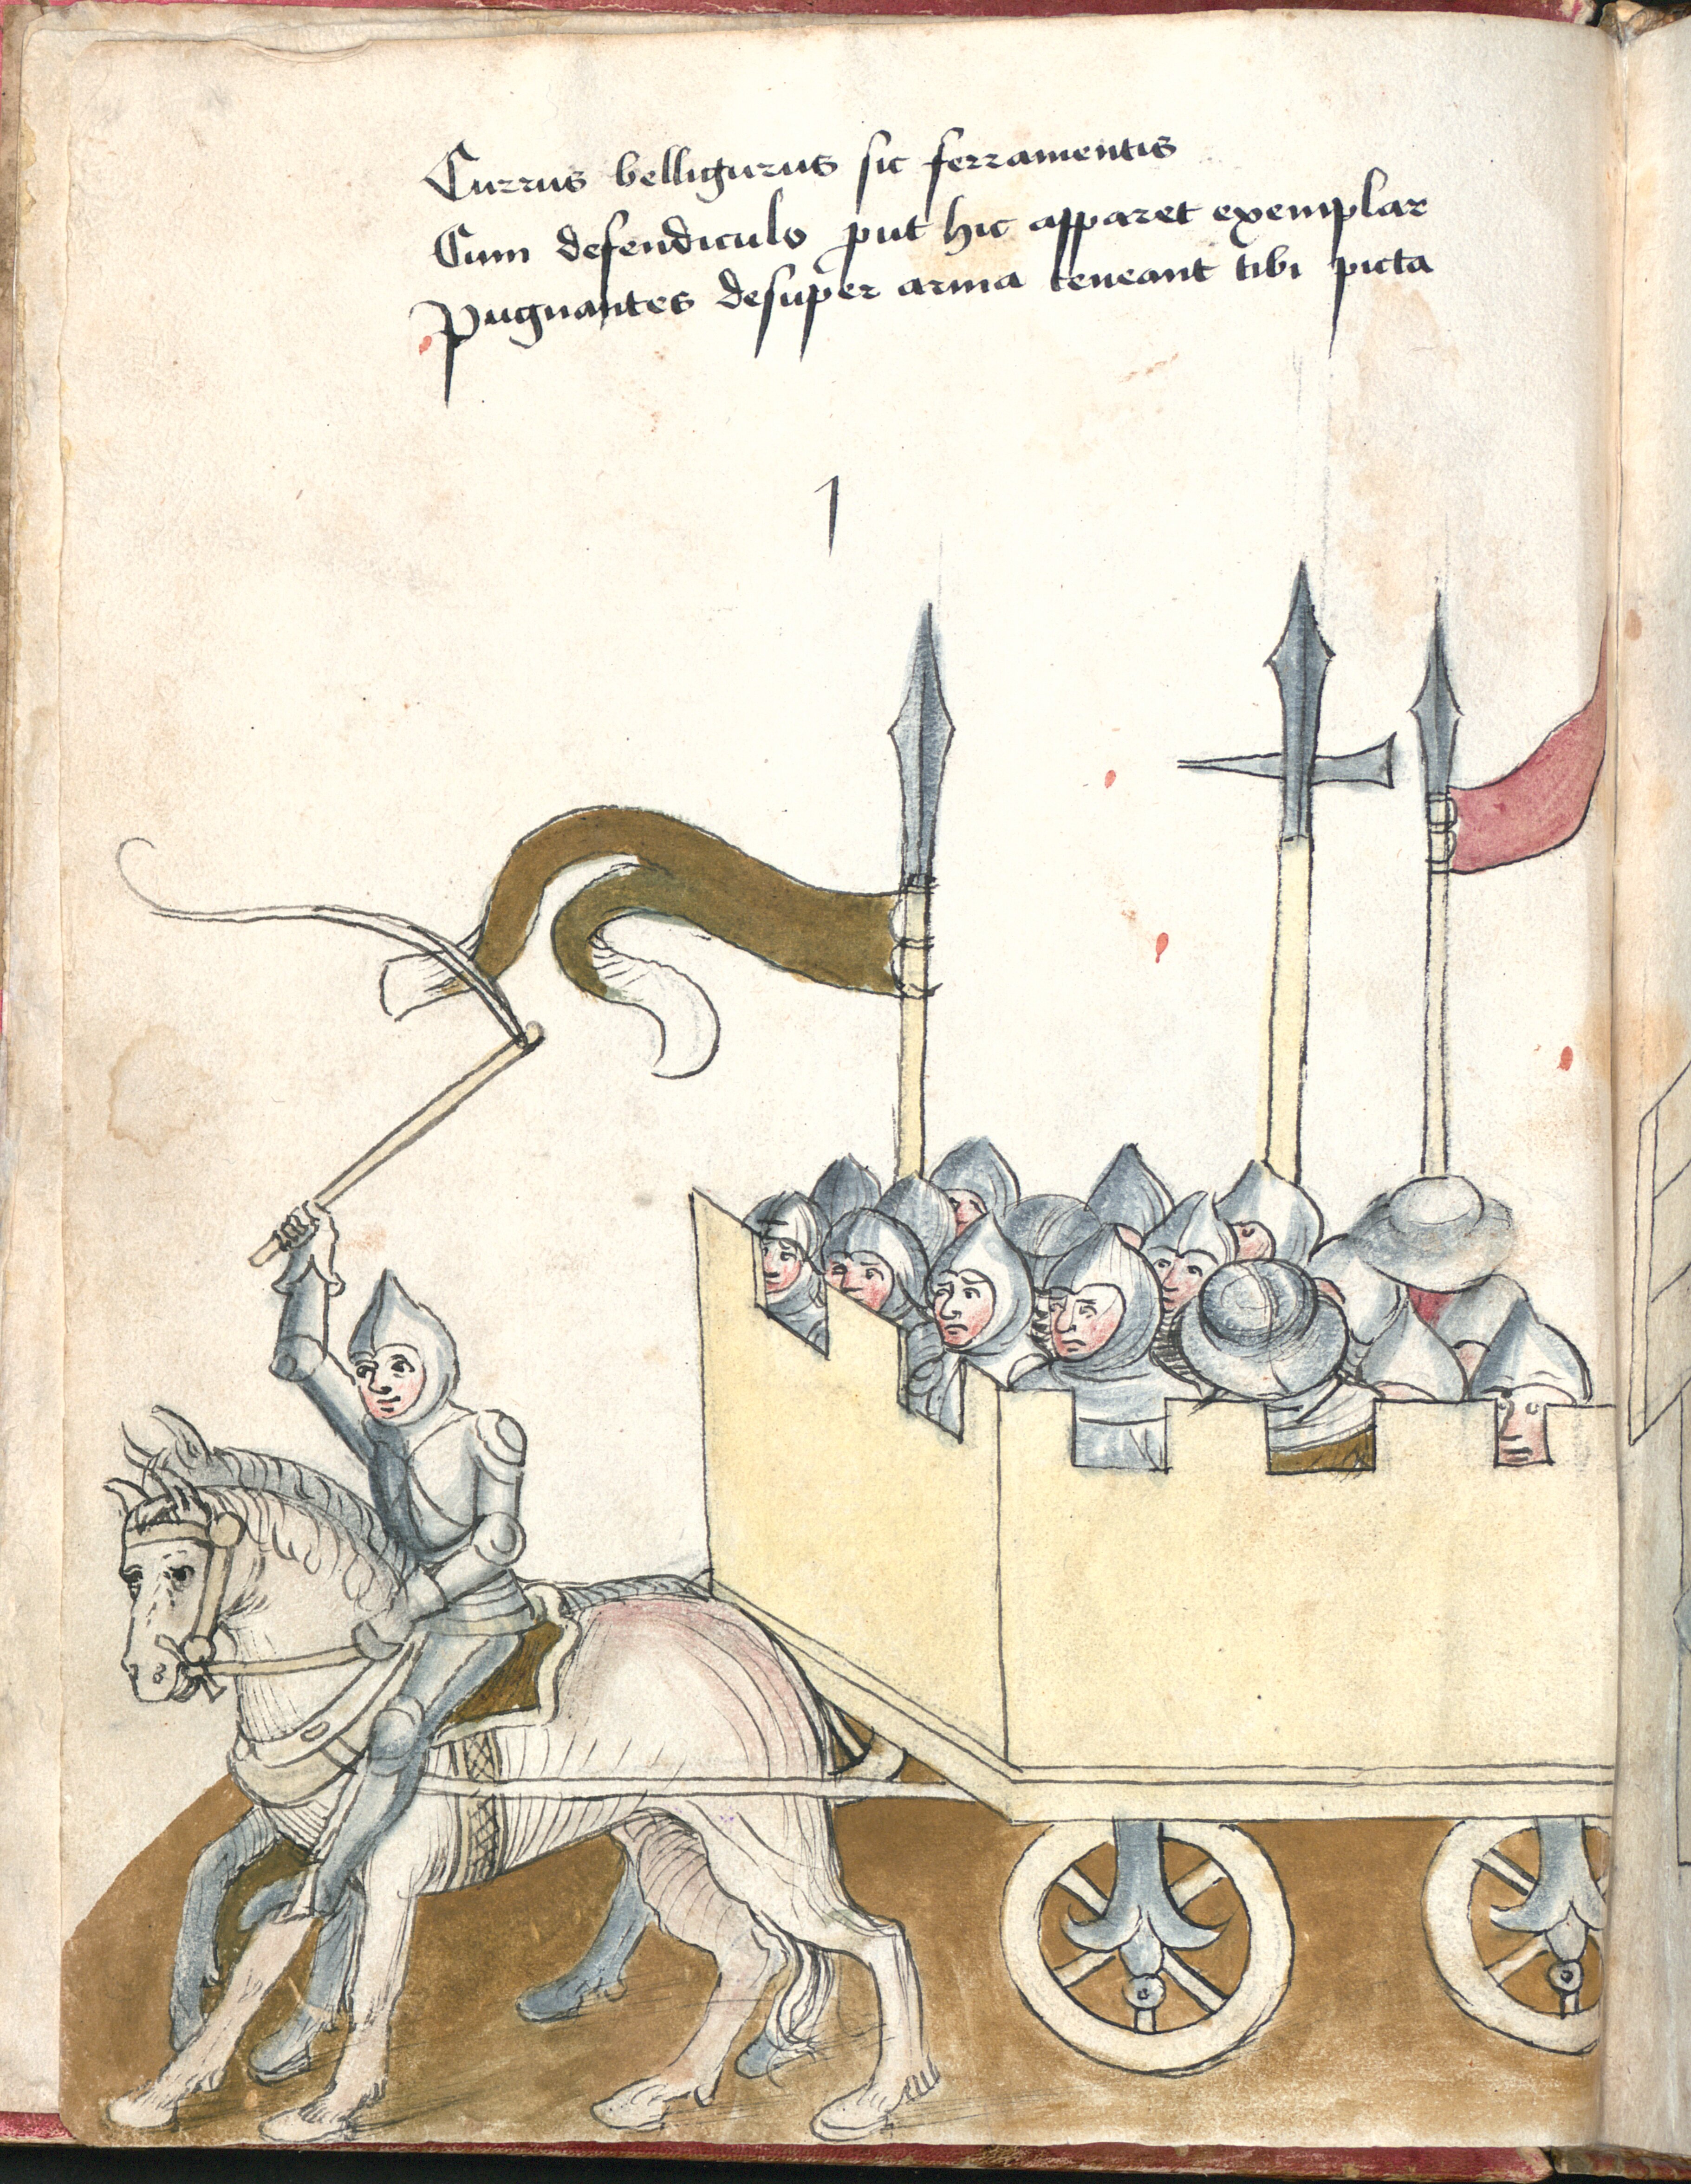 Currus belligurus sic ferramentis
Cum defendiculo put hic apparet exemplar
Pugnantes desuper arma teneant tibi picta
1